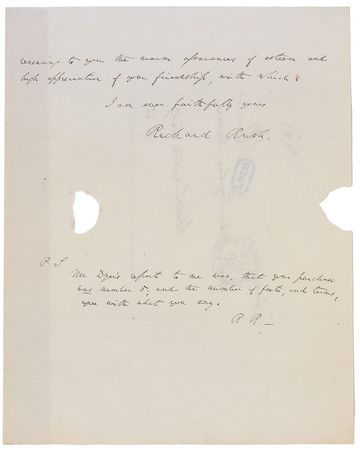 renewing to you the warm assurances of esteem and
high appreciation of your friendship, with which
I am ever faithfully yours
Richard Rush.
P. S.
Mr Dyer's report to me was, that your purchase
was number 5; and the number of feet, and terms,
agree with what you say.
R. R.—